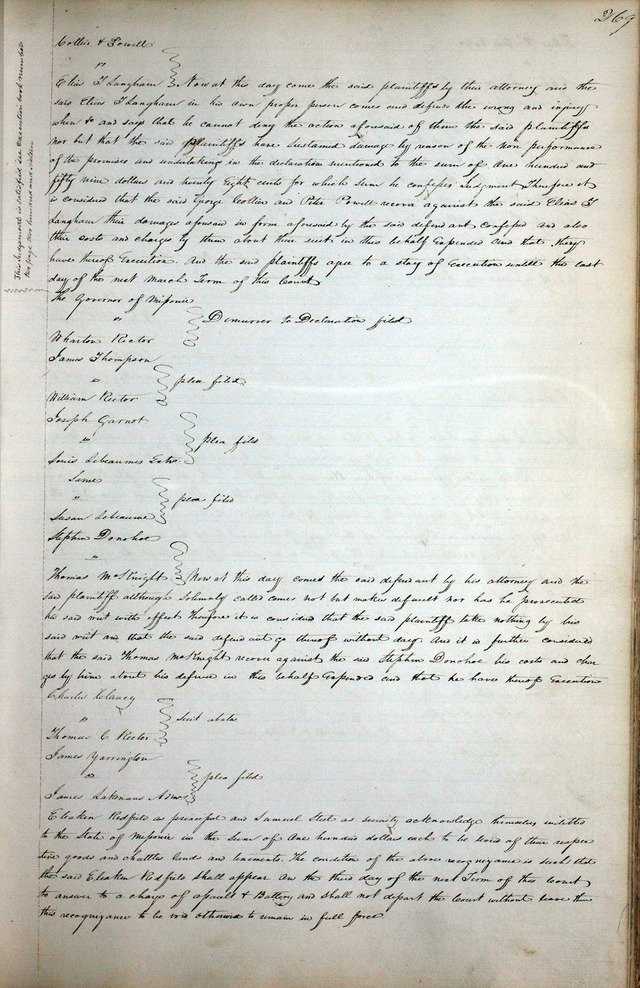 269
Collins & Powell
"
Elias T Langham } Now at this day come the said plaintiffs by their attorney and the
said Elias T Langham in his own proper person comes and defends the wrong and injury
when &c and says that he cannot deny the action aforesaid of them the said plaintiffs
nor but that the said plaintiffs have sustained damage by reason of the non performance
of the promises and undertakings in the declaration mentioned to the sum of One hundred and
fifty nine dollars and twenty Eight cents for which sum he confesses Judgment Therefore it
is considered that the said George Collins and Peter Powell recover against the said Elias T
Langham their damages aforesaid in form aforesaid by the said defendant confessed and also
their costs and charges by them about their suit in this behalf Expended and that they
have thereof Execution. And the said plaintiffs agree to a stay of Execution untill the last
day of the next March Term of this Court
This Judgement is satisfied see execution book number
two page two hundred and sixteen
The Governor of Missouri
"
Demurrer to Declaration filed
Wharton Rector
James Thompson
"
plea filed
William Rector
Joseph Garnot
"
plea filed
Louis Lebeaumes
Same
"
plea filed
Susan Lebeaume
Stephen Donohoe
"
Thomas McKnight } Now at this day comes the said defendant by his attorney and the
said plaintiff although Solemnly called comes not but makes default nor has he prosecuted
his said writ with effect Therefore it is considered that the said plaintiff take nothing by his
said writ and that the said defendant go thereof without day. And it is further considered
that the said Thomas McKnight recover against the said Stephen Donohoe his costs and char
ges by him about his defence in this behalf Expended and that he have thereof Execution
Charles Clancy
"
suit abates
Thomas C Rector
James Yarrington
"
plea filed
James Lakenans Admrs
Redfield as principal and Samuel as security acknowledge themselves indebted
to the State of Missouri in the sum of One hundred dollars each to be levied of their respec
tive goods and chattles lands and tenements. The condition of the above recognizance is such that
the said Redfield shall appear on the third day of the next Term of this Court
to answer to a charge of assault & Battery and shall not depart the Court without leave then
this recognizance to be void otherwise to remain in full force